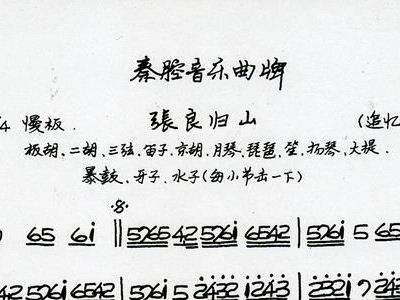 秦腔音乐曲牌
/4 慢板. 張良归山 (追忆
板胡、二胡、三弦、笛子、京胡、月琴、琵琶、笙、扬琴、大提.
暴鼓、牙子、水子(每小节击一下)
65 6i ‖ 5765 42 576i 6542 | 576i 5 65
42 576i 6542 | 576i 5 2432 i243 | 232i 7 24